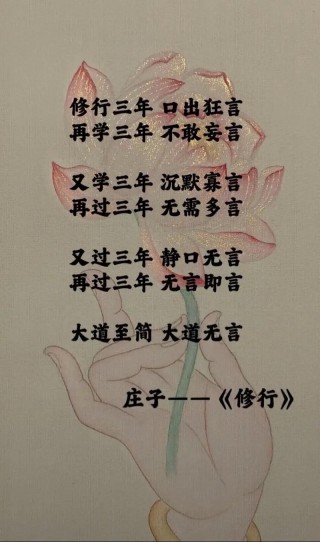 修行三年 口出狂言
再学三年 不敢妄言
又学三年 沉默寡言
再过三年 无需多言
又过三年 静口无言
再过三年 无言即言
大道至简 大道无言
庄子——《修行》